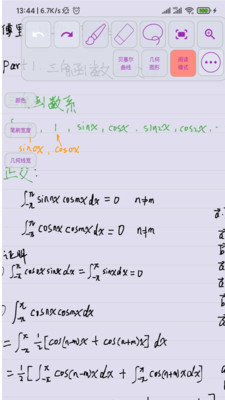 13:44 | 6.7K/s
傅里
贝塞尔曲线
几何图形
阅读模式
Part 1. 三角函数
颜色
函数系
笔刷宽度
1, sinx, cosx, sin2x, cos2x, ·
sin0x, cos0x
几何线宽
正交:
∫_{-π}^{π} sin nx cos mx dx = 0 n≠m
∫_{-π}^{π} cos nx cos mx dx = 0 n≠m
证明
∫_{-π}^{π} cos0x sinx dx = ∫_{-π}^{π} sinx dx = 0
∫_{-π}^{π} cos nx cos mx dx
= ∫_{-π}^{π} 1/2 [cos(n-m)x + cos(n+m)x] dx
= 1/2 [∫_{-π}^{π} cos(n-m)x dx + ∫_{-π}^{π} cos(n+m)x dx]